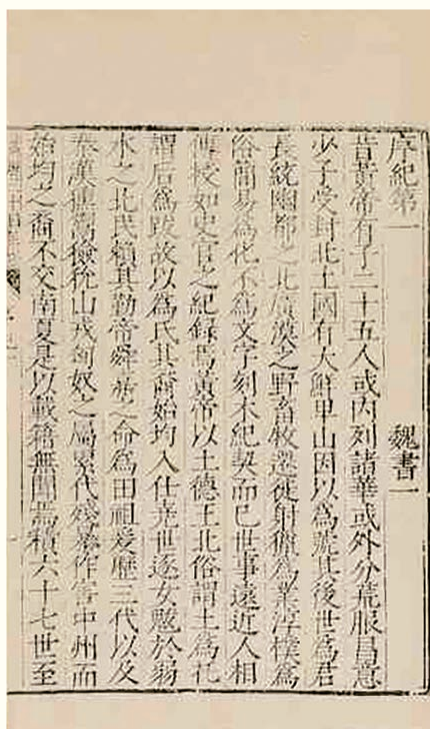 序紀第一 魏書一
昔黃帝有子二十五人或內列諸華或外分荒服昌意
少子受封北土國有大鮮卑山因以為號其後世為君
長統幽都之北廣漠之野畜牧遷徙射獵為業淳樸為
俗簡易為化不為文字刻木紀契而已世事遠近人相
傳授如史官之紀錄焉黃帝以土德王北俗謂土為托
謂后為跋故以為氏其裔始均入仕堯世逐女魃於弱
水之北民賴其勤帝舜嘉之命為田祖爰歷三代以及
秦漢獯鬻獫狁山戎匈奴之屬累代殘暴作害中州而
始均之裔不交南夏是以載籍無聞焉積六十七世至